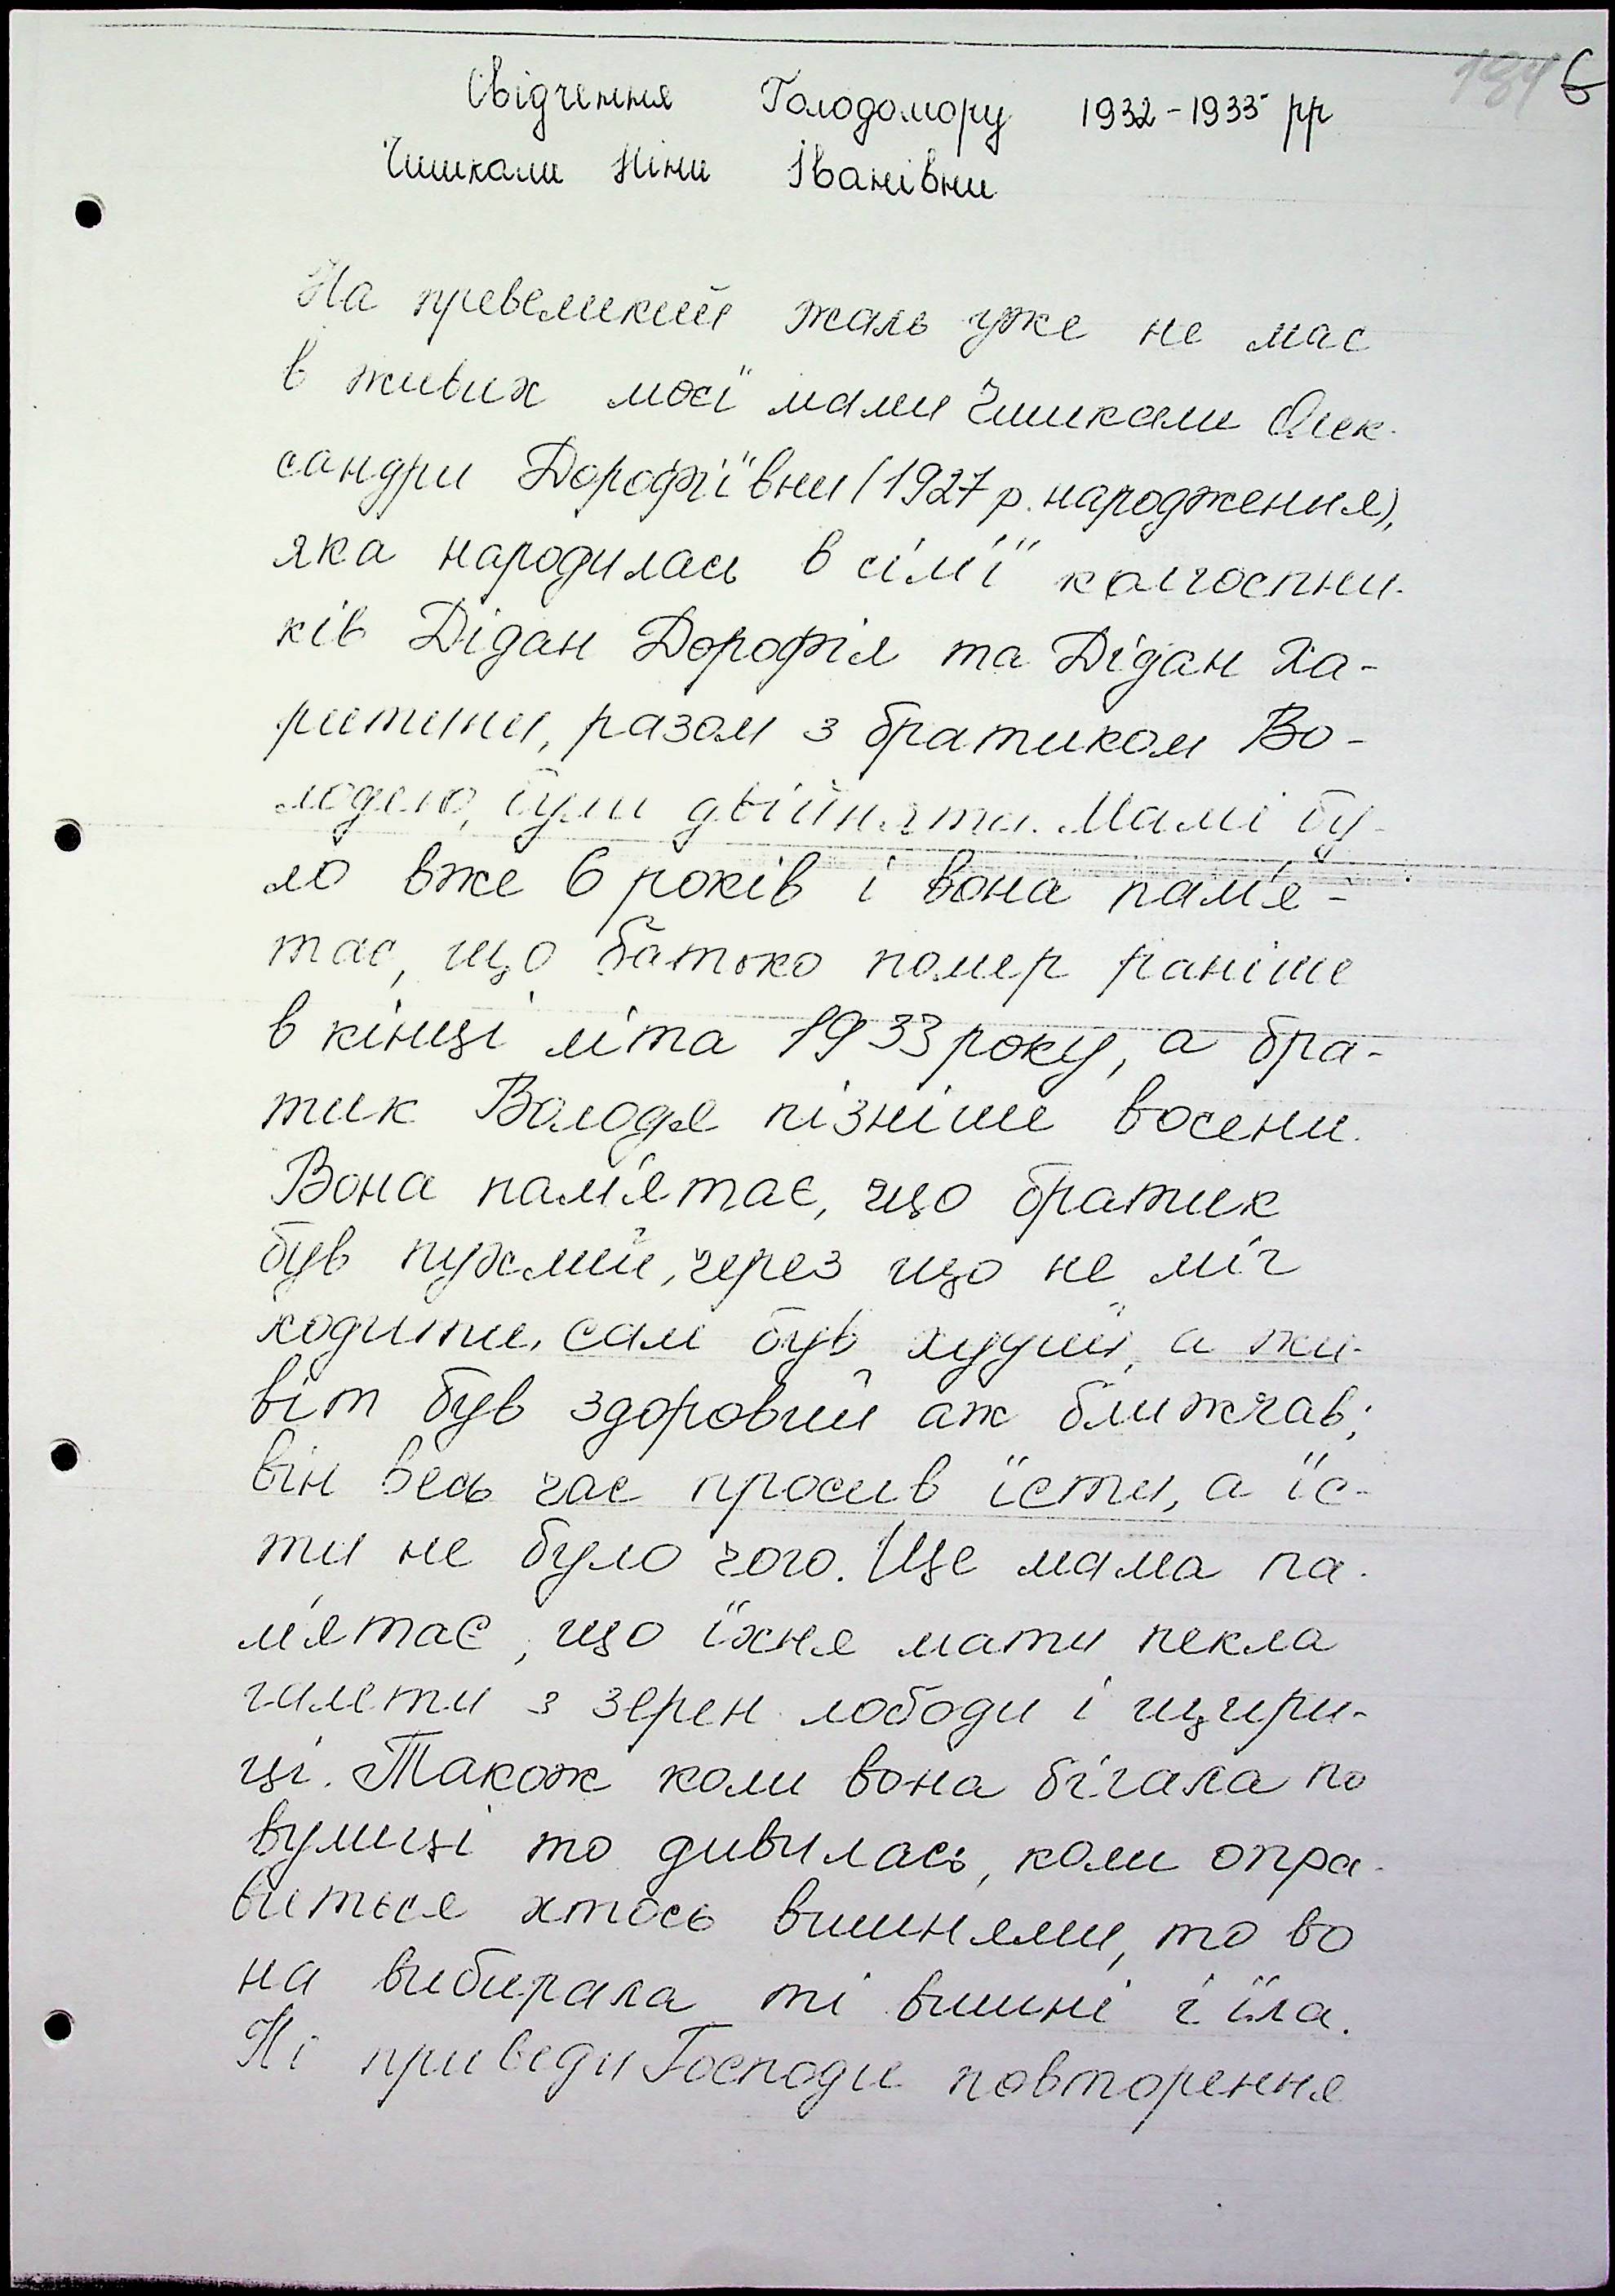 Свідчення Голодомору 1932-1933 рр
Чишкали Ніни Іванівни
На превеликий жаль уже не має
в живих моєї мами Чишкали Олек-
сандри Дорофіївни (1927 р. народження),
яка народилась в сім'ї колгоспни-
ків Дідан Дорофія та Дідан Ха-
ритини, разом з братиком Во-
лодею, були двійнята. Мамі бу-
ло вже 6 років і вона пам'я-
тає, що батько помер раніше
в кінці літа 1933 року, а бра-
тик Володя пізніше восени.
Вона пам'ятає, що братик
був пухлий, через що не міг
ходити, сам був худий, а жи-
віт був здоровий аж ближчав;
він весь час просив їсти, а їс-
ти не було чого. Ще мама па-
м'ятає, що їхня мати пекла
галети з зерен лободи і щири-
ці. Також коли вона бігала по
вулиці то дивилась, коли опра-
виться хтось вишнями, то во
на вибирала ті вишні і їла.
Ні приведи Господи повторення